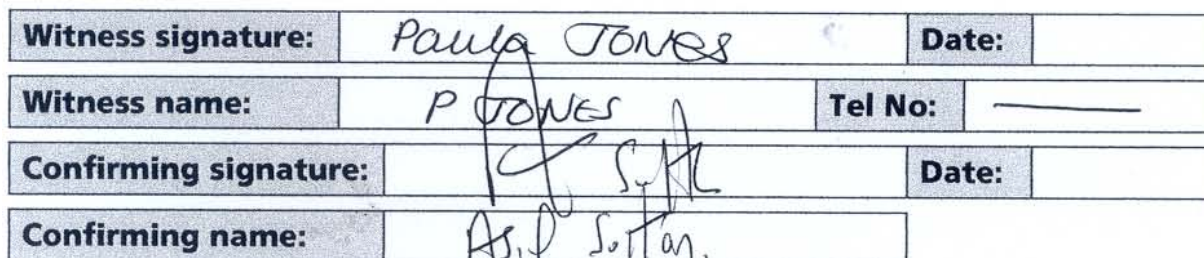 Witness signature: Paula JONES Date:
Witness name: P JONES Tel No:
Confirming signature: Date:
Confirming name: